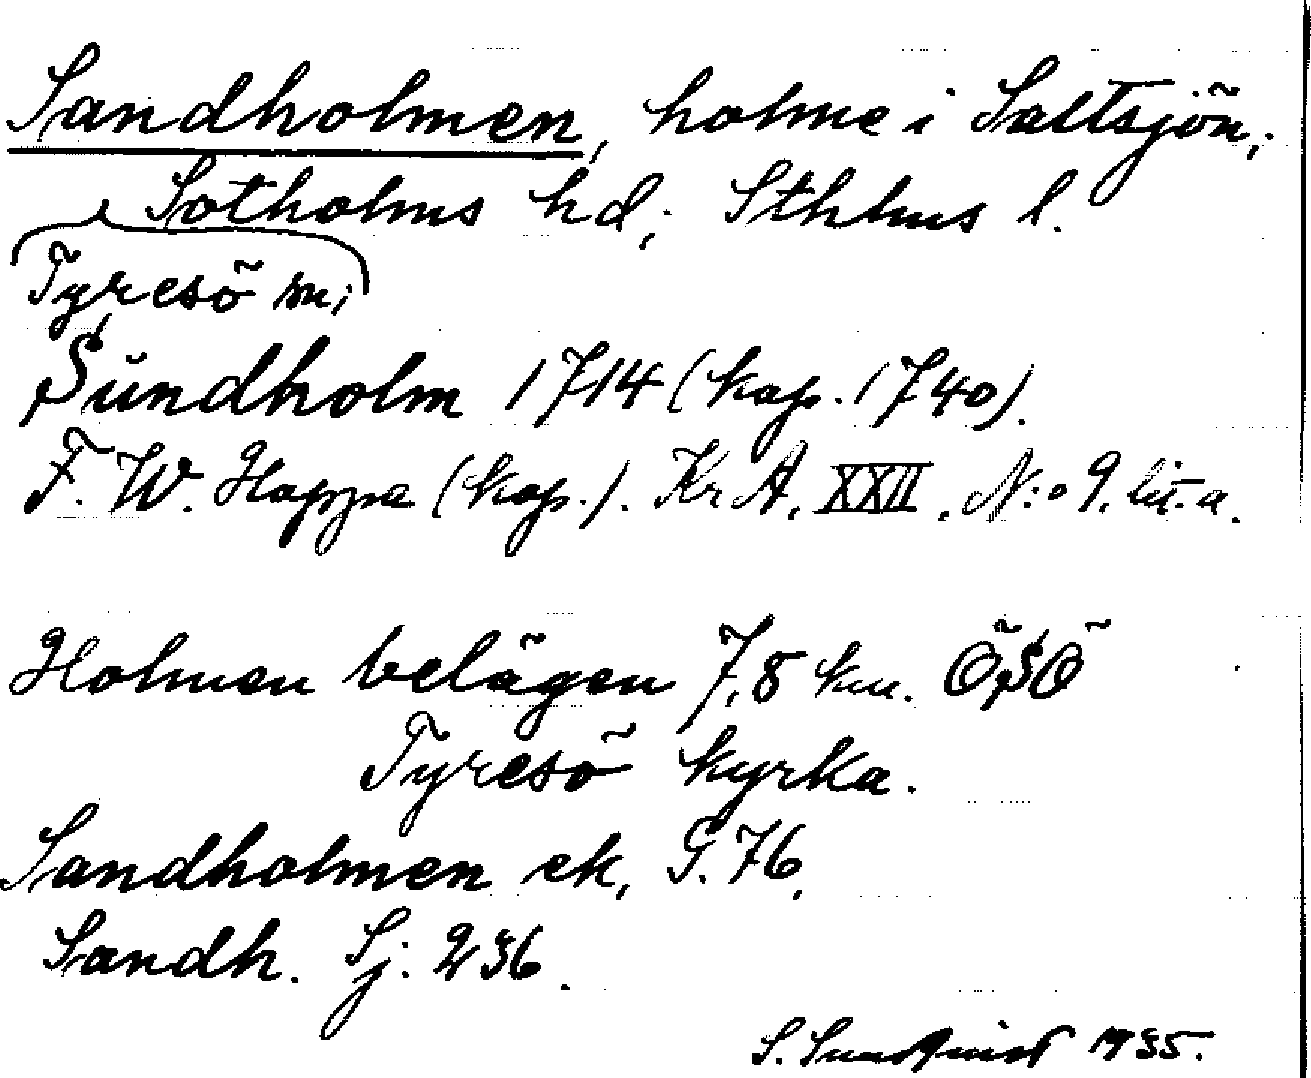 Sandholmen, holme i Saltsjön;
Sotholms hd; Sthlms l.
Tyresö sn;
Sundholm 1714 (kop. 1740).
F. W. Happa (kop.). Kr A. XXII. N:o 9. lit. a.
Holmen belägen 7,8 km. ÖSÖ
Tyresö kyrka.
Sandholmen ek, G. 76.
Sandh. Sj. 236.
S. Sundqvist 1935.